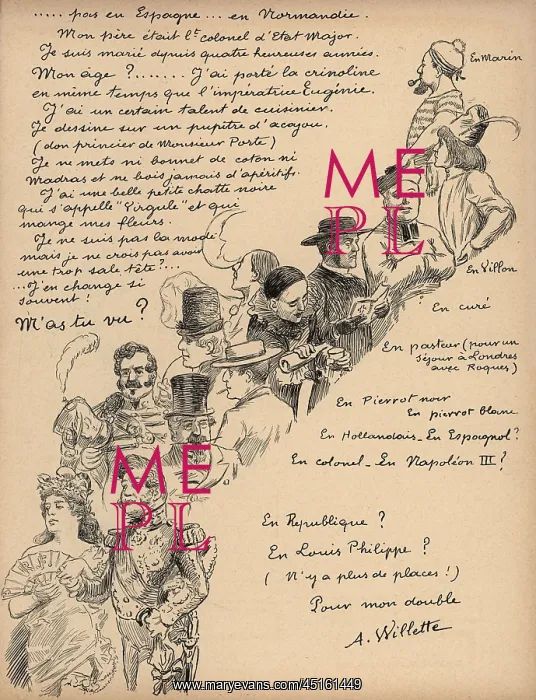 ..... pas en Espagne ... en Normandie.
Mon père était lt colonel d'Etat Major.
Je suis marié depuis quatre heureuses années.
Mon âge ?....... J'ai porté la crinoline
en même temps que l'impératrice Eugénie.
J'ai un certain talent de cuisinier.
Je dessine sur un pupitre d'acajou.
(don princier de Monsieur Porte)
Je ne mets ni bonnet de coton ni
Madras et ne bois jamais d'apéritifs.
J'ai une belle petite chatte noire
qui s'appelle "Virgule" et qui
mange mes fleurs.
Je ne suis pas la mode
mais je ne crois pas avoir
une trop sale tête ?...
...J'en change si
souvent !
M'as tu vu ?
En Marin
En Villon
En curé
En pasteur (pour un
séjour à Londres
avec Roques)
En Pierrot noir
En pierrot blanc
En Hollandais _ En Espagnol ?
En colonel _ En Napoléon III ?
En République ?
En Louis Philippe ?
( N'y a plus de places !)
Pour mon double
A. Willette
ME
PL
ME
PL
www.maryevans.com/45161449